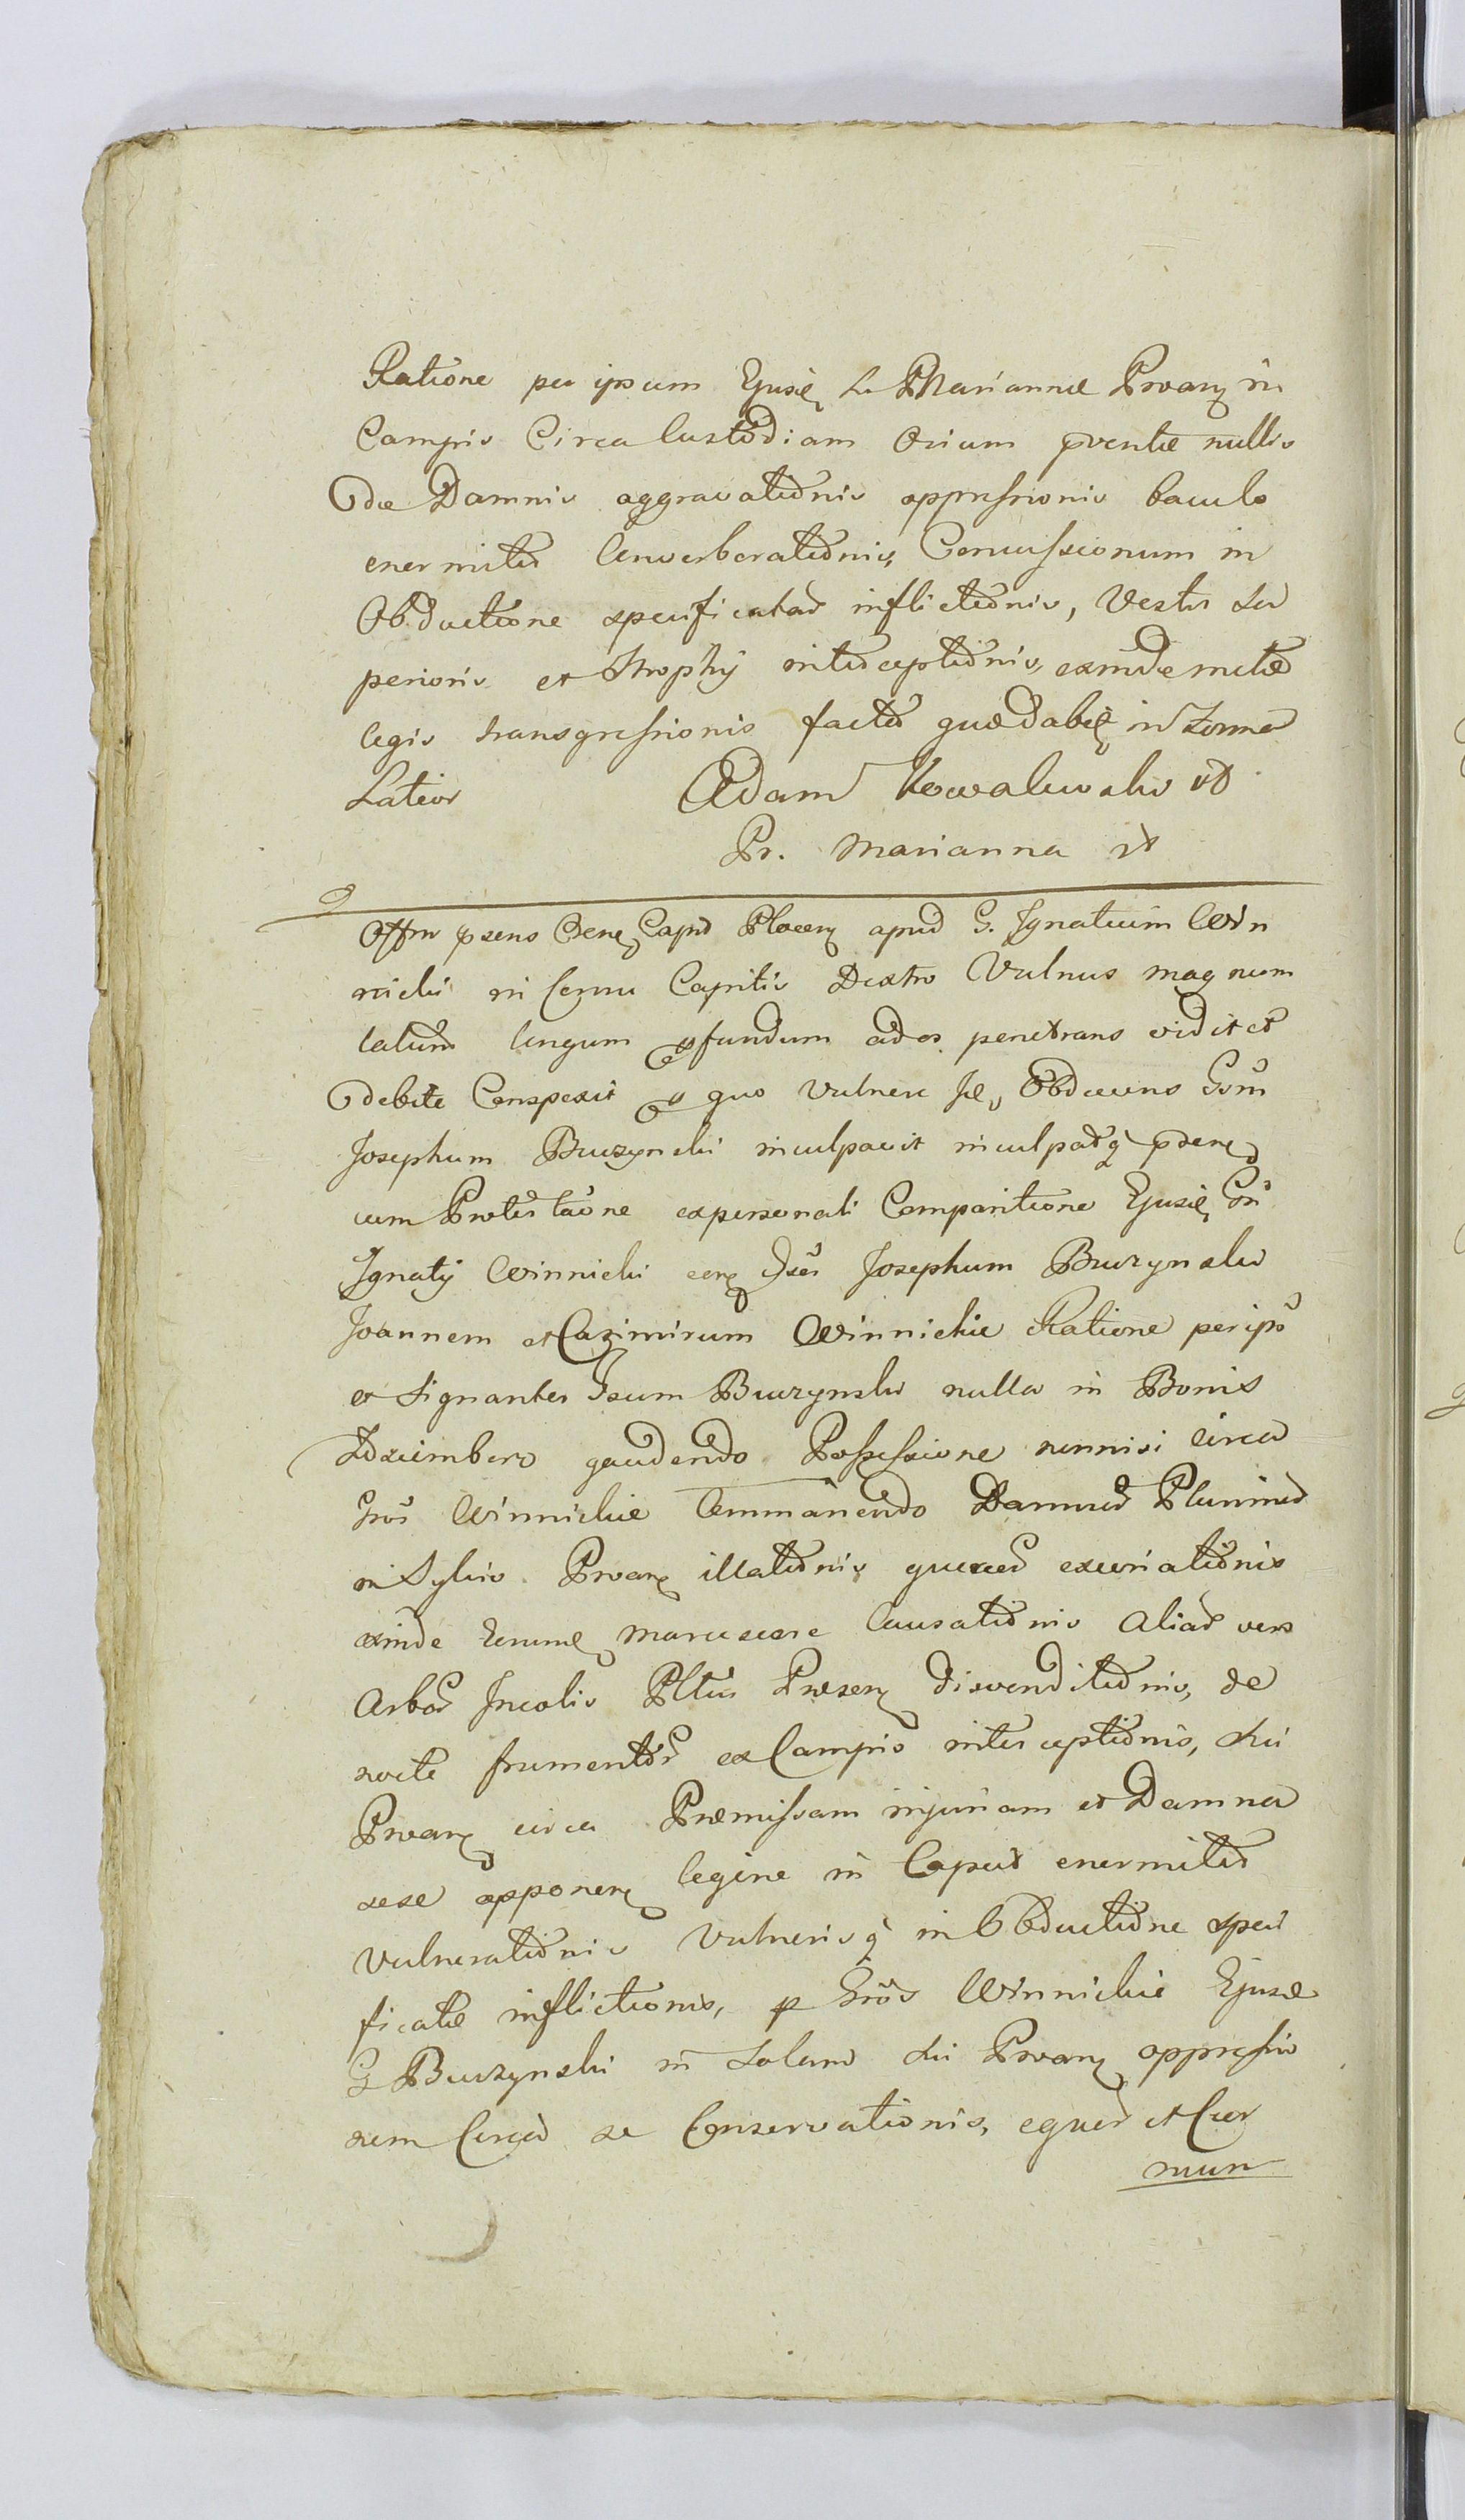 Ratione per ipsum Ejusd La Mariannæ Proarz in
Campis Circa Custodiam Ovium pventæ nullis
de Damnis aggravationis oppressionis baculo
enormiter Converberationis, Concussionum in
Obductione specificatar inflictionis, Vestis Su
perioris et Strophij interceptionis, exinde
legis transgressionis factor in Forma
Latior Adam Kowalewski
Pr. Marianna
Offm psens Capt Plocen apud G. Ignatium Win
nicki in Cornu Capitis Dextro Vulnus magnum
latum longum pfundum ad os penetrans vidit et
debite Conspexit p quo Vulnere Obducens Gsm
Josephum Burzynski inculpavit inculpatq
cum Protestaone ex personali Comparitione Ejusd Gsi
Ignatij Winnicki Josephum Burzynski
Joannem et Cazimirum Winnickie Ratione per ips
et signanter Burzynski nulla in Bonis
Zdziembors gaudendo Possessione nonnisi circa
Gsos Winnickie Commanendo Damnor Plurimor
in Sylvis Proarz illationis quercuu excoriationis
exinde marcescere Causationis Aliar vero
Arbor Incolis Pltus disvenditionis, de
nocte frumentor ex Campis interceptionis, Sui
Proarz circa Præmissam injuriam et Damna
sese opponen legine in Caput enormiter
Vulnerationis Vulnerisq in Obductione speci
ficatæ inflictionis, p Gsos Winnickie Ejusd
G Burzynski in Solam Sui Proarz oppressio
nem Circa se Conservationis, equor et Cor
num